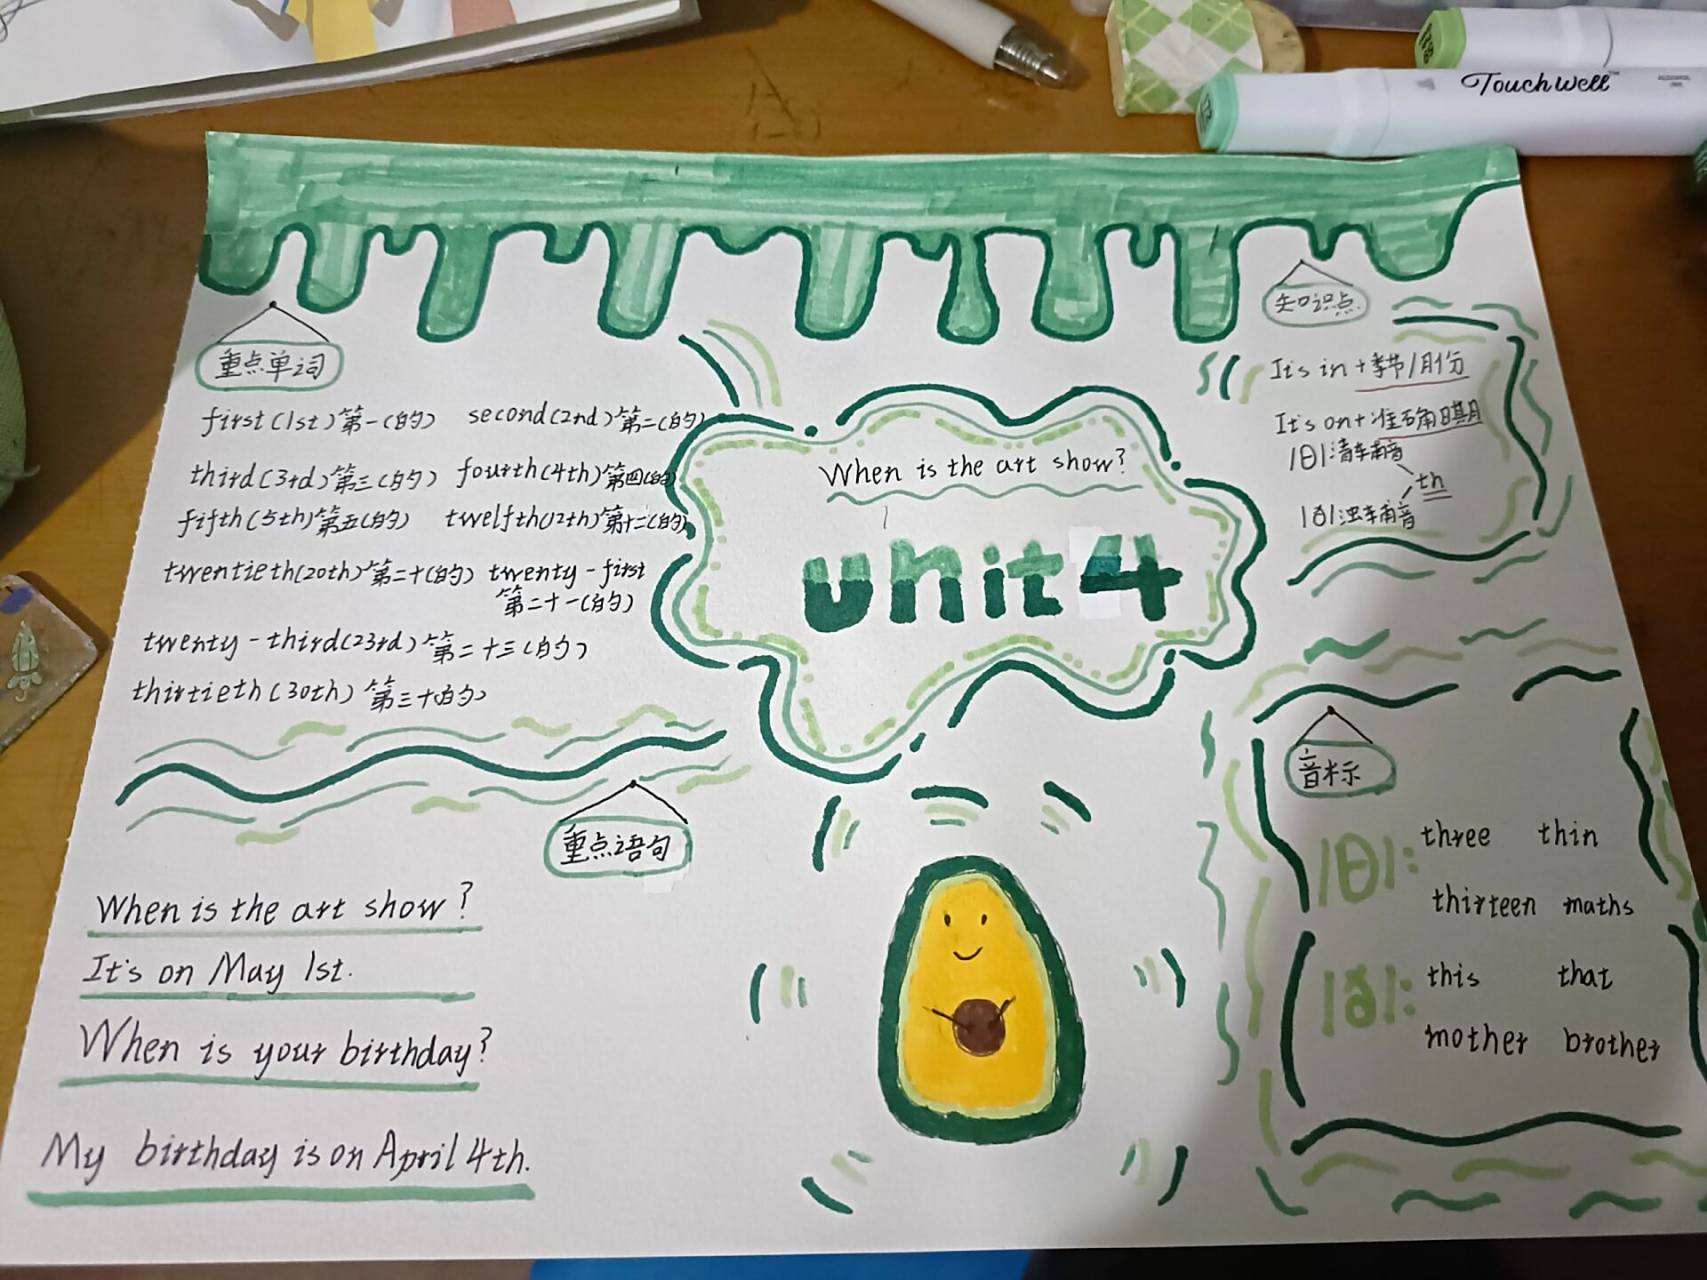 Touchwell
知识点
重点单词
It's in + 季节/月份
first(1st)第一(的) second(2nd)第二(的)
It's on + 准确日期
third(3rd)第三(的) fourth(4th)第四(的)
/θ/清辅音
th
/ð/浊辅音
fifth(5th)第五(的) twelfth(12th)第十二(的)
twentieth(20th)第二十(的) twenty-first
第二十一(的)
twenty-third(23rd)第二十三(的)
thirtieth(30th)第三十(的)
When is the art show?
unit4
重点语句
When is the art show?
It's on May 1st.
When is your birthday?
My birthday is on April 4th.
音标
/θ/: three thin
thirteen maths
/ð/: this that
mother brother